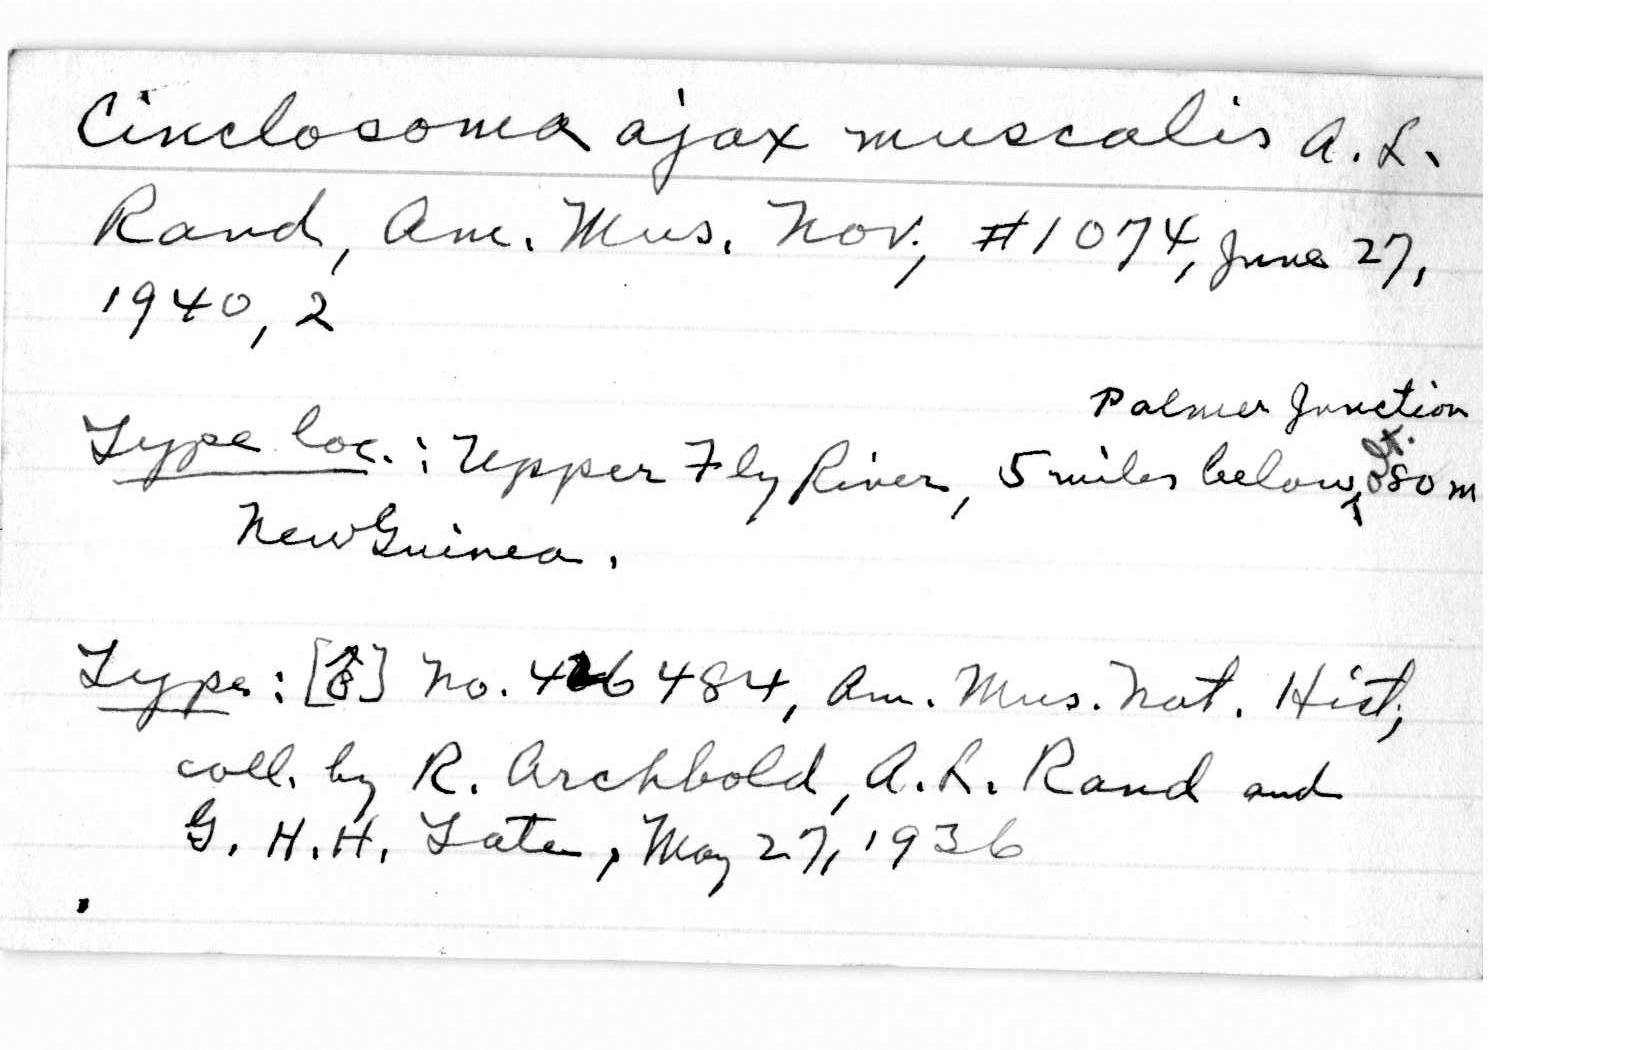 Cinclosoma ajax muscalis A. L.
Rand, Am. Mus. Nov., #1074, June 27,
1940, 2
Palmer Junction
Type loc.: Upper Fly River, 5 miles below, alt. 80 m
New Guinea.
Type: [♂] No. 426484, Am. Mus. Nat. Hist.,
coll. by R. Archbold, A. L. Rand and
G. H. H. Tate, May 27, 1936